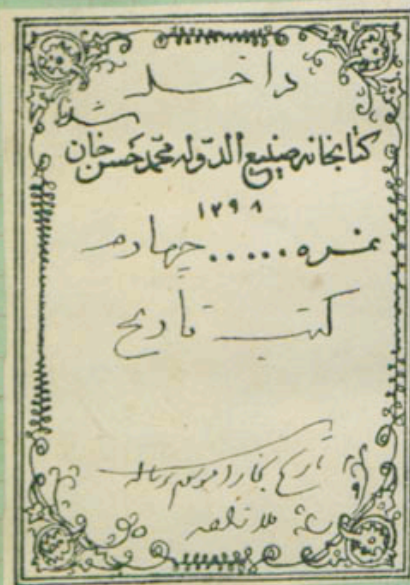 داخل
شد
کتابخانه صنیع الدوله محمد حسن خان
۱۲۹۸
نمره ..... چهارم
کتب تاریخ
تاریخ بخارا موسوم